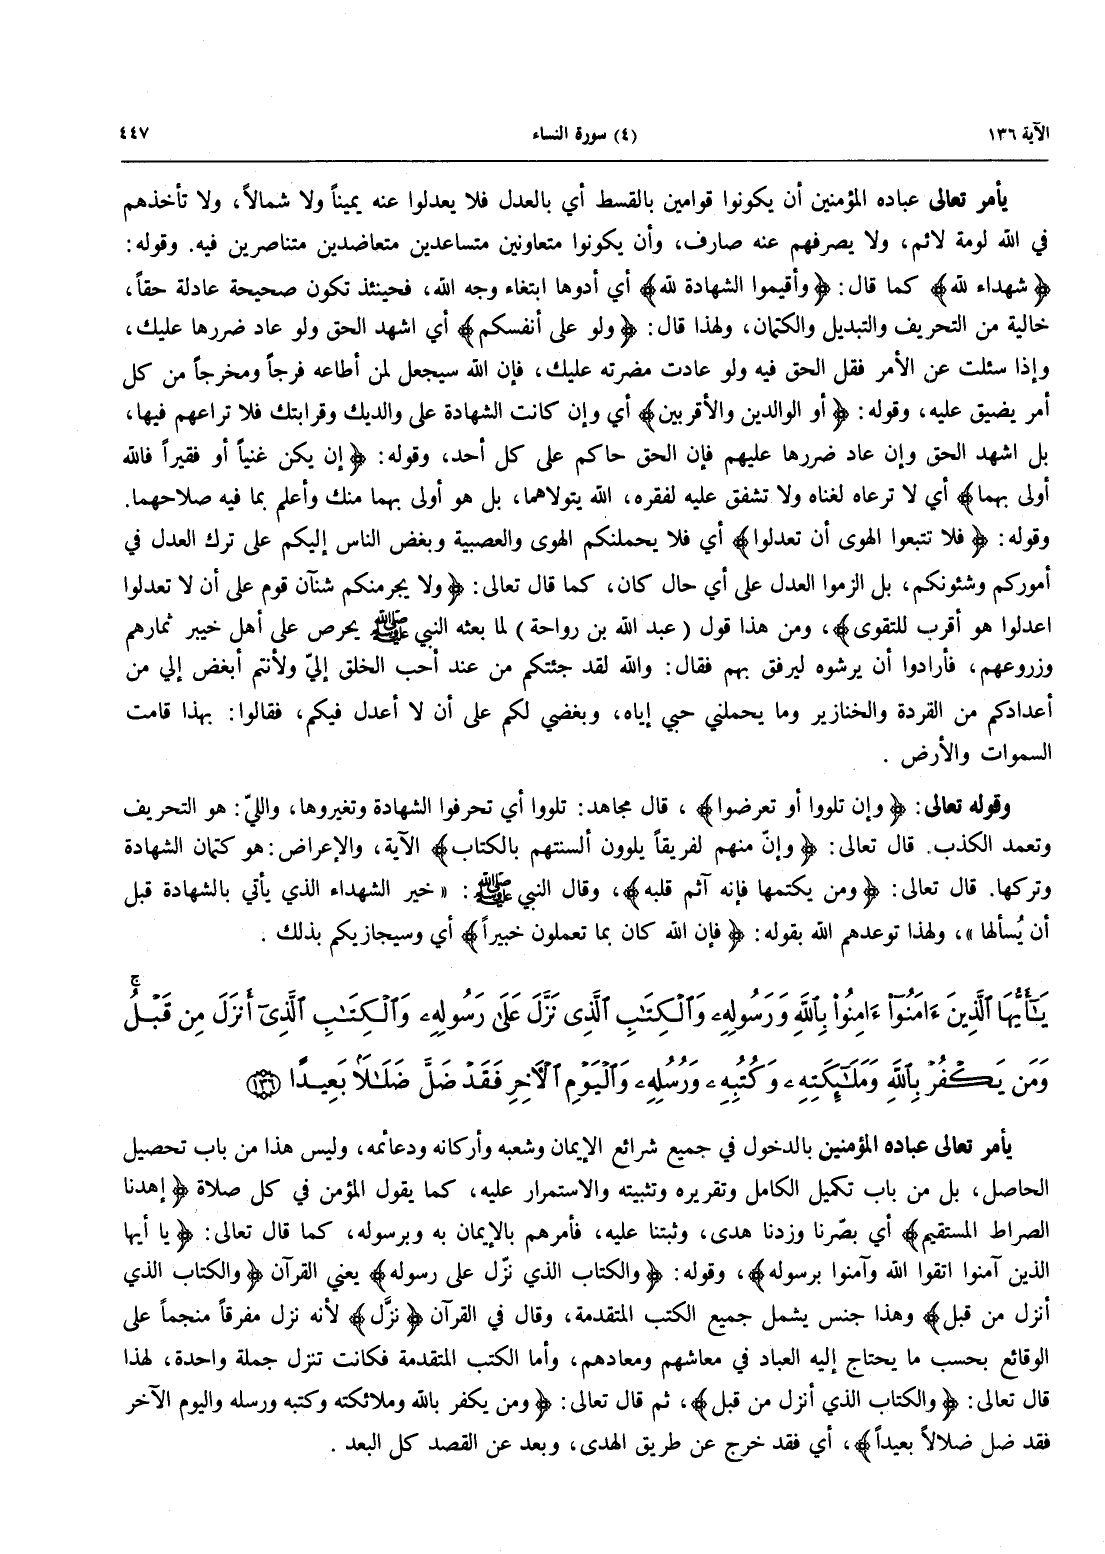 الآية ١٣٦
(٤) سورة النساء
٤٤٧
يأمر تعالى عباده المؤمنين أن يكونوا قوامين بالقسط أي بالعدل فلا يعدلوا عنه يميناً ولا شمالاً، ولا تأخذهم
في الله لومة لائم، ولا يصرفهم عنه صارف، وأن يكونوا متعاونين متساعدين متعاضدين متناصرين فيه. وقوله:
﴿شهداء لله﴾ كما قال: ﴿وأقيموا الشهادة لله﴾ أي أدوها ابتغاء وجه الله، فحينئذ تكون صحيحة عادلة حقاً،
خالية من التحريف والتبديل والكتمان، ولهذا قال: ﴿ولو على أنفسكم﴾ أي اشهد الحق ولو عاد ضررها عليك،
وإذا سئلت عن الأمر فقل الحق فيه ولو عادت مضرته عليك، فإن الله سيجعل لمن أطاعه فرجاً ومخرجاً من كل
أمر يضيق عليه، وقوله: ﴿أو الوالدين والأقربين﴾ أي وإن كانت الشهادة على والديك وقرابتك فلا تراعهم فيها،
بل اشهد الحق وإن عاد ضررها عليهم فإن الحق حاكم على كل أحد، وقوله: ﴿إن يكن غنياً أو فقيراً فالله
أولى بهما﴾ أي لا ترعاه لغناه ولا تشفق عليه لفقره، الله يتولاهما، بل هو أولى بهما منك وأعلم بما فيه صلاحهما.
وقوله: ﴿فلا تتبعوا الهوى أن تعدلوا﴾ أي فلا يحملنكم الهوى والعصبية وبغض الناس إليكم على ترك العدل في
أموركم وشئونكم، بل الزموا العدل على أي حال كان، كما قال تعالى: ﴿ولا يجرمنكم شنآن قوم على أن لا تعدلوا
اعدلوا هو أقرب للتقوى﴾، ومن هذا قول (عبد الله بن رواحة) لما بعثه النبي ﷺ يحرص على أهل خيبر ثمارهم
وزروعهم، فأرادوا أن يرشوه ليرفق بهم فقال: والله لقد جئتكم من عند أحب الخلق إليّ ولأنتم أبغض إلي من
أعدادكم من القردة والخنازير وما يحملني حبي إياه، وبغضي لكم على أن لا أعدل فيكم، فقالوا: بهذا قامت
السموات والأرض .
وقوله تعالى: ﴿وإن تلووا أو تعرضوا﴾، قال مجاهد: تلووا أي تحرفوا الشهادة وتغيروها، والليّ: هو التحريف
وتعمد الكذب. قال تعالى: ﴿وإنّ منهم لفريقاً يلوون ألسنتهم بالكتاب﴾ الآية، والإعراض: هو كتمان الشهادة
وتركها. قال تعالى: ﴿ومن يكتمها فإنه آثم قلبه﴾، وقال النبي ﷺ: «خير الشهداء الذي يأتي بالشهادة قبل
أن يُسألها»، ولهذا توعدهم الله بقوله: ﴿فإن الله كان بما تعملون خبيراً﴾ أي وسيجازيكم بذلك .
يَـٰٓأَيُّهَا ٱلَّذِينَ ءَامَنُوٓا۟ ءَامِنُوا۟ بِٱللَّهِ وَرَسُولِهِۦ وَٱلْكِتَـٰبِ ٱلَّذِى نَزَّلَ عَلَىٰ رَسُولِهِۦ وَٱلْكِتَـٰبِ ٱلَّذِىٓ أَنزَلَ مِن قَبْلُ ۚ
وَمَن يَكْفُرْ بِٱللَّهِ وَمَلَـٰٓئِكَتِهِۦ وَكُتُبِهِۦ وَرُسُلِهِۦ وَٱلْيَوْمِ ٱلْـَٔاخِرِ فَقَدْ ضَلَّ ضَلَـٰلًۢا بَعِيدًا ﴿١٣٦﴾
يأمر تعالى عباده المؤمنين بالدخول في جميع شرائع الإيمان وشعبه وأركانه ودعائمه، وليس هذا من باب تحصيل
الحاصل، بل من باب تكميل الكامل وتقريره وتثبيته والاستمرار عليه، كما يقول المؤمن في كل صلاة ﴿إهدنا
الصراط المستقيم﴾ أي بصّرنا وزدنا هدى، وثبتنا عليه، فأمرهم بالإيمان به وبرسوله، كما قال تعالى: ﴿يا أيها
الذين آمنوا اتقوا الله وآمنوا برسوله﴾، وقوله: ﴿والكتاب الذي نزّل على رسوله﴾ يعني القرآن ﴿والكتاب الذي
أنزل من قبل﴾ وهذا جنس يشمل جميع الكتب المتقدمة، وقال في القرآن ﴿نزَّل﴾ لأنه نزل مفرقاً منجماً على
الوقائع بحسب ما يحتاج إليه العباد في معاشهم ومعادهم، وأما الكتب المتقدمة فكانت تنزل جملة واحدة، لهذا
قال تعالى: ﴿والكتاب الذي أنزل من قبل﴾، ثم قال تعالى: ﴿ومن يكفر بالله وملائكته وكتبه ورسله واليوم الآخر
فقد ضل ضلالاً بعيداً﴾، أي فقد خرج عن طريق الهدى، وبعد عن القصد كل البعد .